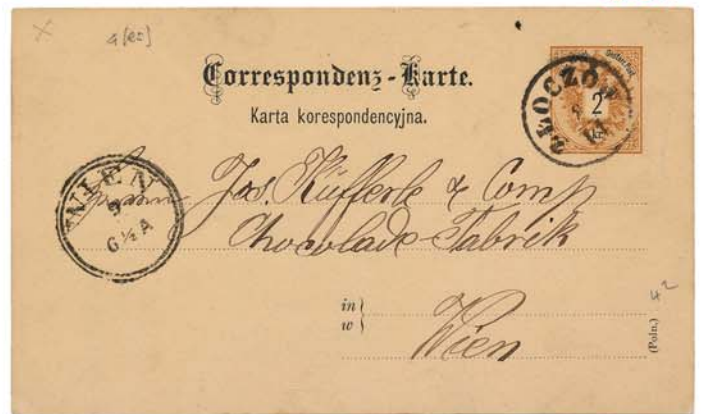 4 [85]
Correspondenz-Karte.
Karta korespondencyjna.
ZŁOCZÓW
2
VI
WIEN
9
6½A
Jos. Küfferle & Comp
Chocolade-Fabrik
in
w
Wien
(Poln.)
42